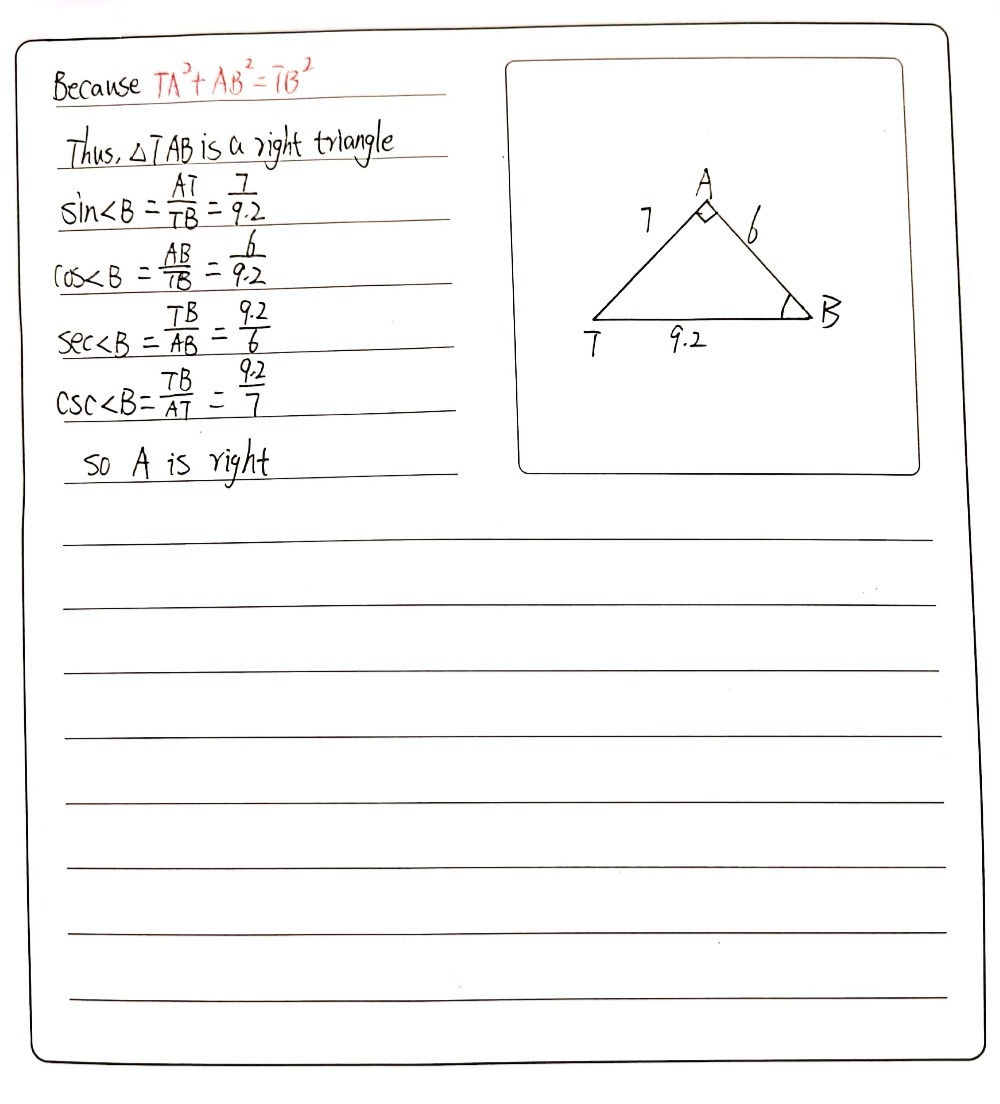 Because TA²+AB²=TB²
Thus, △TAB is a right triangle
sin<B = AT/TB = 7/9.2
cos<B = AB/TB = 6/9.2
sec<B = TB/AB = 9.2/6
csc<B = TB/AT = 9.2/7
so A is right
A
7
6
B
T
9.2